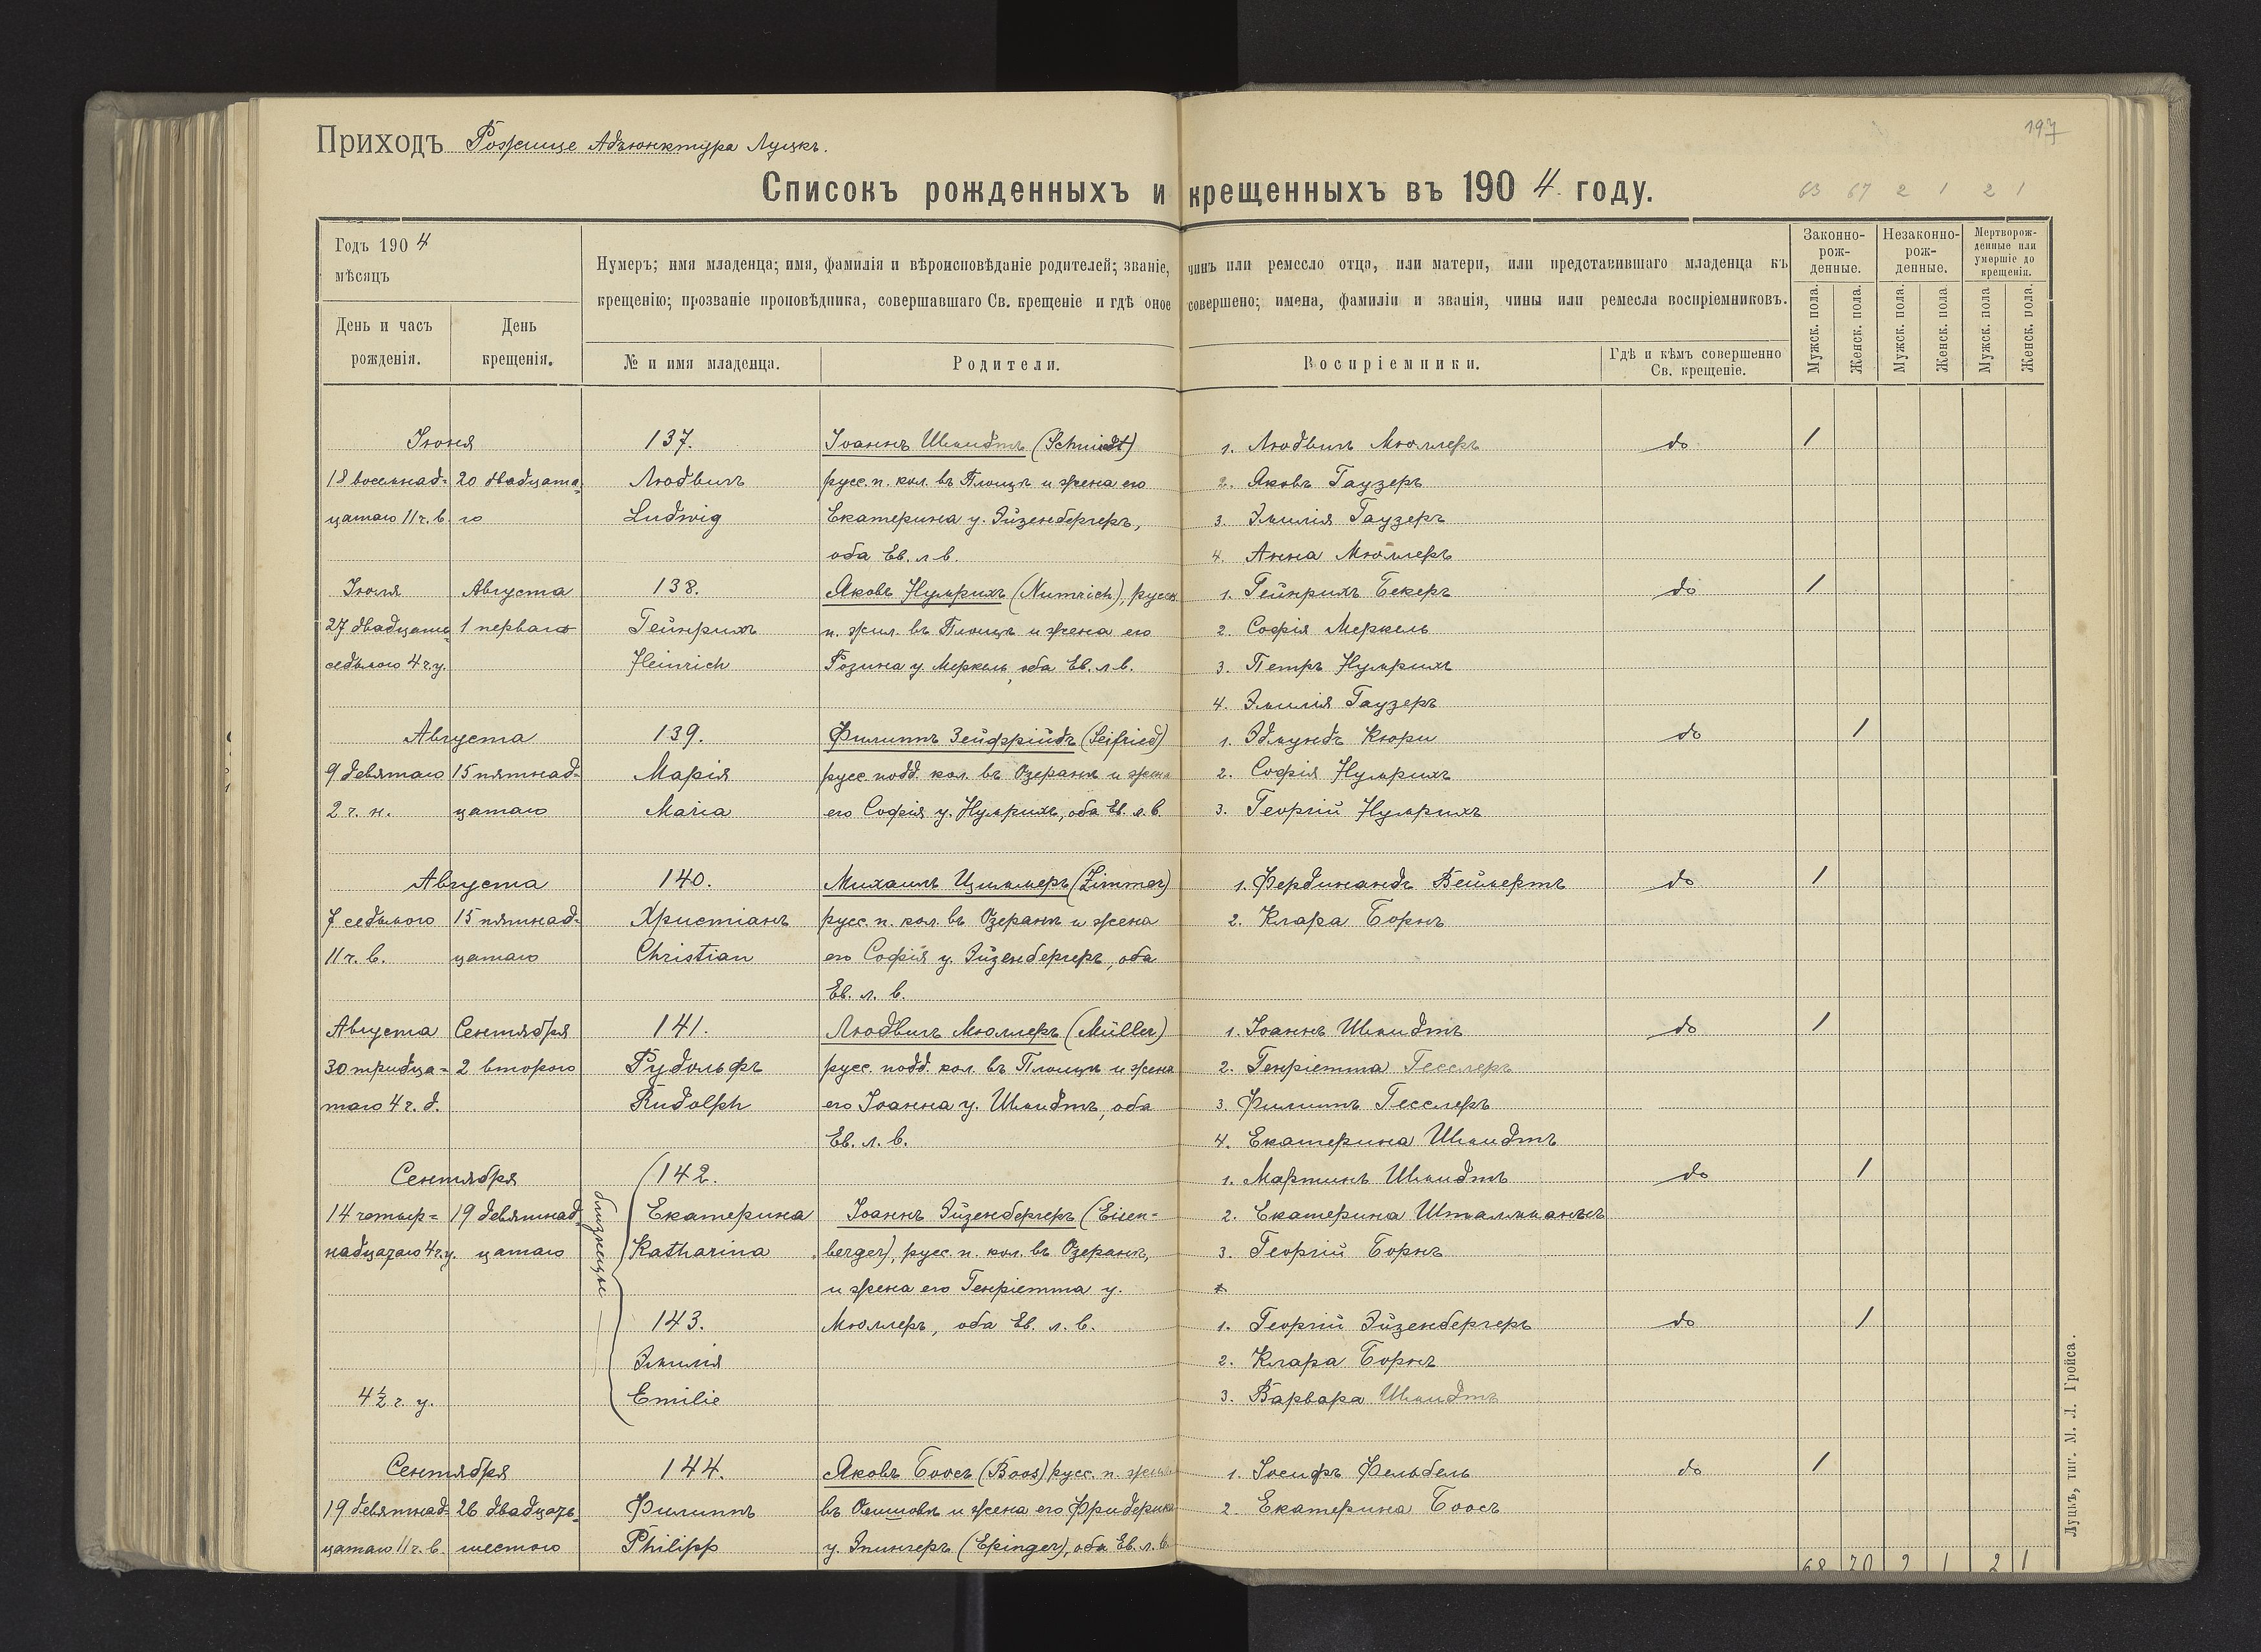 197
Приходъ Рожище Адъюнктура Луцкъ.
Списокъ рожденныхъ и крещенныхъ въ 1904 году.
63 67 2 1 2 1
Годъ 1904
мѣсяцъ
День и часъ рожденія.
День крещенія.
Нумеръ; имя младенца; имя, фамилія и вѣроисповѣданіе родителей; званіе, чинъ или ремесло отца, или матери, или представившаго младенца къ
крещенію; прозваніе проповѣдника, совершавшаго Св. крещеніе и гдѣ оное совершено; имена, фамиліи и званія, чины или ремесла воспріемниковъ.
№ и имя младенца.
Родители.
Воспріемники.
Гдѣ и кѣмъ совершенно Св. крещеніе.
Законно-рож-денные.
Незаконно-рож-денные.
Мертворож-денные или умершіе до крещенія.
Мужск. пола. Женск. пола. Мужск. пола. Женск. пола. Мужск. пола Женск. пола.
Іюня 137. Іоаннъ Шмидтъ (Schmidt) 1. Людвигъ Мюллеръ do 1
18 восемнад= 20 двадцата= Людвигъ русс. п. кол. въ Площѣ и жена его 2. Яковъ Гаузеръ
цатаго 11 ч. в. го Ludwig Екатерина у. Эйзенбергеръ, 3. Эмилія Гаузеръ
оба Ев. л. в. 4. Анна Мюллеръ
Іюля Августа 138. Яковъ Нумрихъ (Numrich), русск. 1. Гейнрихъ Бекеръ do 1
27 двадцать 1 перваго Гейнрихъ п. жил. въ Площѣ и жена его 2. Софія Меркель
седьмого 4 ч. у. Heinrich Розина у. Меркель, оба Ев. л. в. 3. Петръ Нумрихъ
4. Эмилія Гаузеръ
Августа 139. Филиппъ Зейфрійдъ (Seifried) 1. Эдмундъ Кюри do 1
9 девятаго 15 пятнад= Марія русс. подд. кол. въ Озеранѣ и жена 2. Софія Нумрихъ
2 ч. н. цатаго Maria его Софія у. Нумрихъ, оба Ев. л. в. 3. Георгій Нумрихъ
Августа 140. Михаилъ Циммеръ (Zimmer) 1. Фердинандъ Веймертъ do 1
7 седьмого 15 пятнад= Христіанъ русс. п. кол. въ Озеранѣ и жена 2. Клара Борнъ
11 ч. в. цатаго Christian его Софія у. Эйзенбергеръ, оба
Ев. л. в.
Августа Сентября 141. Людвигъ Мюллеръ (Müller) 1. Іоаннъ Шмидтъ do 1
30 тридца= 2 второго Рудольфъ русс. подд. кол. въ Площѣ и жена 2. Генріетта Гесслеръ
таго 4 ч. д. Rudolph его Іоанна у. Шмидтъ, оба 3. Филиппъ Гесслеръ
Ев. л. в. 4. Екатерина Шмидтъ
Сентября 142. 1. Мартинъ Шмидтъ do 1
14 четыр= 19 девятнад= Екатерина Іоаннъ Эйзенбергеръ (Eisen= 2. Екатерина Штальманъ
надцатаго 4 ч. у. цатаго Katharina berger), русс. п. кол. въ Озеранѣ, 3. Георгій Борнъ
близнецы
и жена его Генріетта у.
143. Мюллеръ, оба Ев. л. в. 1. Георгій Эйзенбергеръ do 1
Эмилія 2. Клара Борнъ
4½ ч. у. Emilie 3. Варвара Шмидтъ
Сентября 144. Яковъ Боосъ (Boos) русс. п. 1. Іосифъ Фельбель do 1
19 девятнад= 26 двадцать= Филиппъ въ и жена его Фридерика 2. Екатерина Боосъ
цатаго 11 ч. в. шестого Philipp у. Эпингеръ (Epinger), оба Ев. л. в.
68 70 2 1 2 1
Луцкъ, тип. М. Л. Гройса.